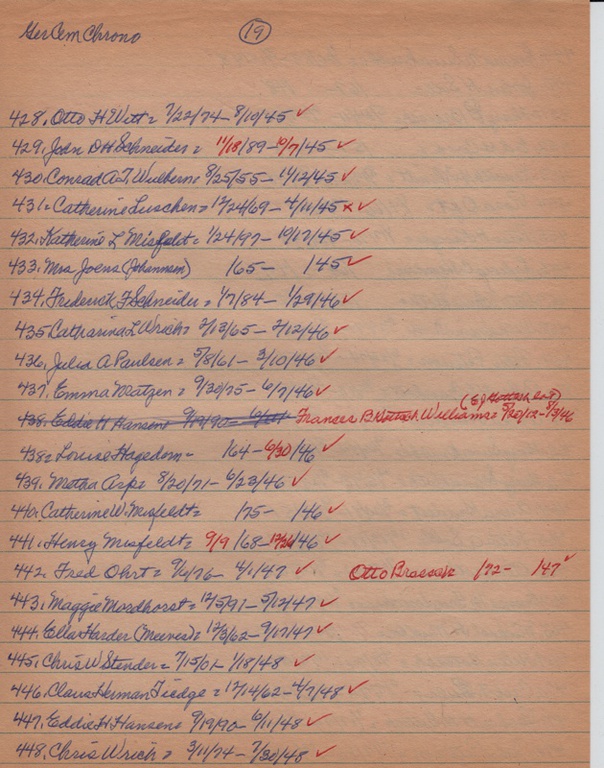 Ger Cem Chrono 19
428. Otto H Witt = 7/22/74 - 8/10/45 ✓
429. John D H Schneider = 11/18/89 - 10/7/45 ✓
430. Conrad A.T. Wulbern = 8/25/55 - 11/12/45 ✓
431. Catherine Luschen = 12/24/69 - 4/11/45 x ✓
432. Katherine L Misfeldt = 1/24/97 - 10/17/45 ✓
433. Mrs Joens (Johannsen) /65 - /45 ✓
434. Frederick F Schneider = 1/7/84 - 1/29/46 ✓
435 Catharina L Wrich = 2/13/65 - 2/12/46 ✓
436. Julia A Paulsen = 5/8/61 - 3/10/46 ✓
437. Emma Matzen = 9/30/75 - 6/7/46 ✓
(EJ lot)
438. Eddie H Hansen = 9/19/90 - Frances B Williams = 5/20/12 - 5/3/46
438 = Louise Hagedorn = /64 - 6/30/46 ✓
439. Metha Asp = 8/20/71 - 6/23/46 ✓
440. Catherine W. Misfeldt = /75 - /46 ✓
441. Henry Misfeldt = 9/9/68 - 12/26/46 ✓
442. Fred Ohrt = 9/6/76 - 4/1/47 ✓ Otto Braasch /72 - /47 ✓
443. Maggie Mordhorst = 12/5/91 - 5/12/47 ✓
444. Ella Harder (Meeves) = 12/3/62 - 9/17/47 ✓
445. Chris W Stender = 7/15/01 - 1/18/48 ✓
446. Claus Herman Tiedge = 12/14/62 - 4/7/48 ✓
447. Eddie H Hansen = 9/19/90 - 6/11/48 ✓
448. Chris Wrich = 3/11/74 - 7/30/48 ✓